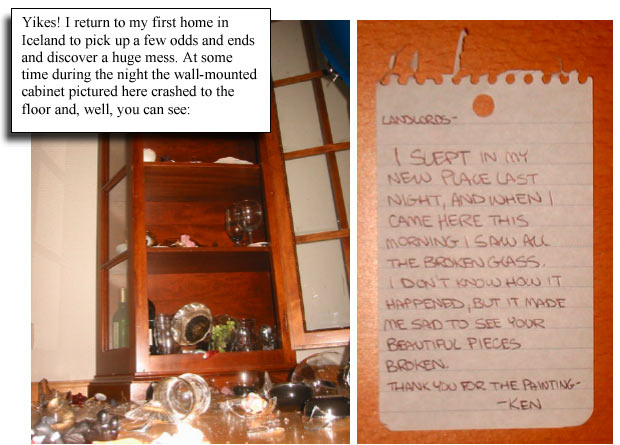 Yikes! I return to my first home in
Iceland to pick up a few odds and ends
and discover a huge mess. At some
time during the night the wall-mounted
cabinet pictured here crashed to the
floor and, well, you can see:
LANDLORDS-
I SLEPT IN MY
NEW PLACE LAST
NIGHT, AND WHEN I
CAME HERE THIS
MORNING I SAW ALL
THE BROKEN GLASS.
I DON'T KNOW HOW IT
HAPPENED, BUT IT MADE
ME SAD TO SEE YOUR
BEAUTIFUL PIECES
BROKEN.
THANK YOU FOR THE PAINTING-
-KEN